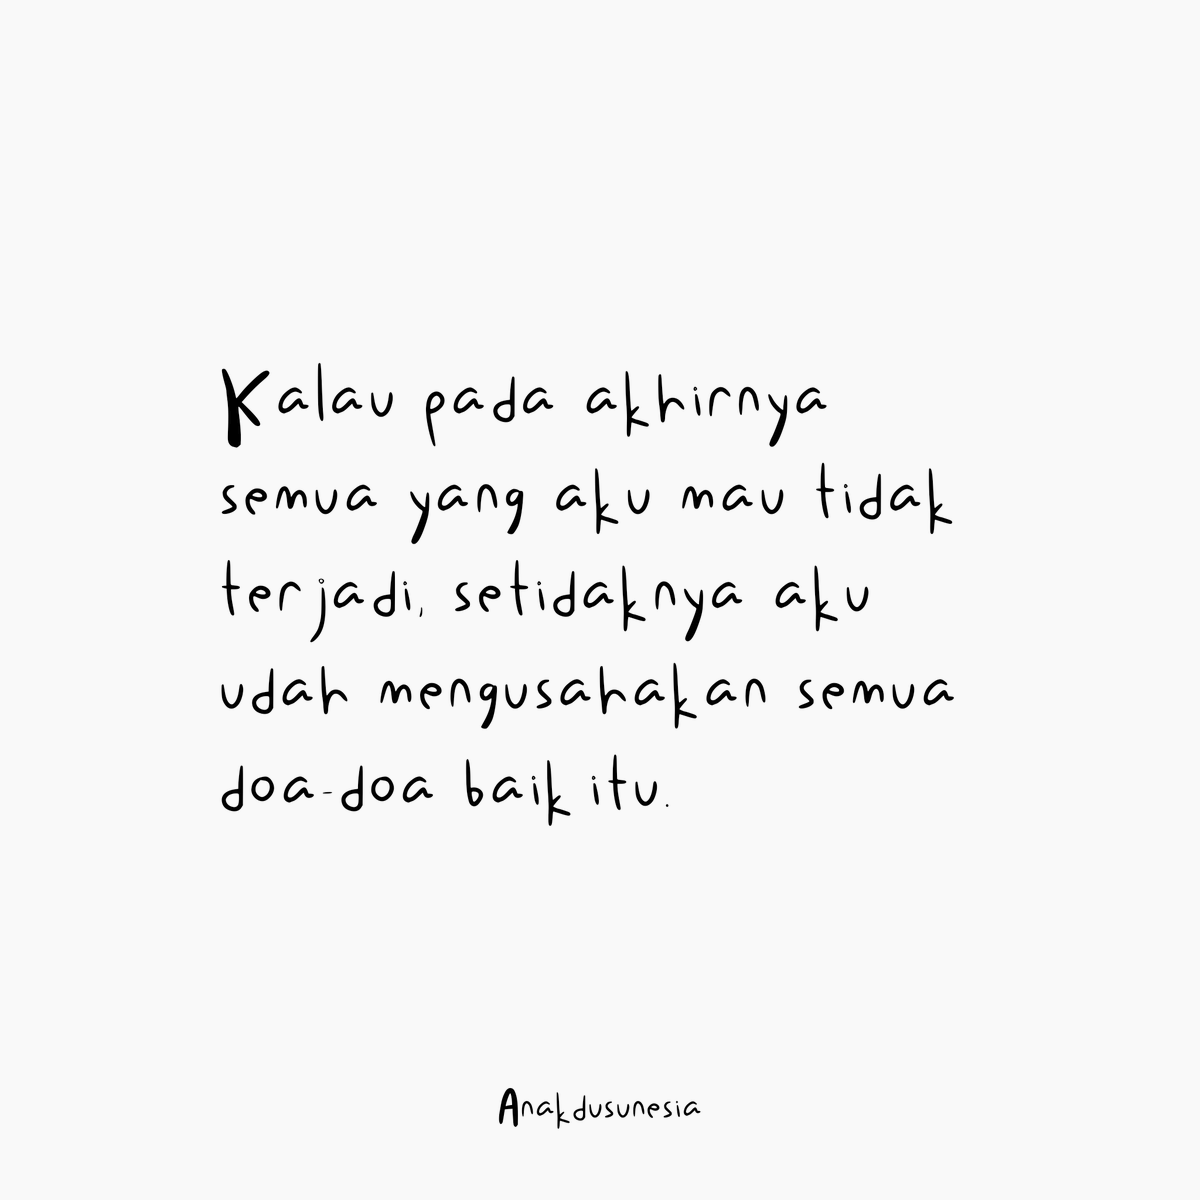 Kalau pada akhirnya
semua yang aku mau tidak
terjadi, setidaknya aku
udah mengusahakan semua
doa-doa baik itu.
Anakdusunesia